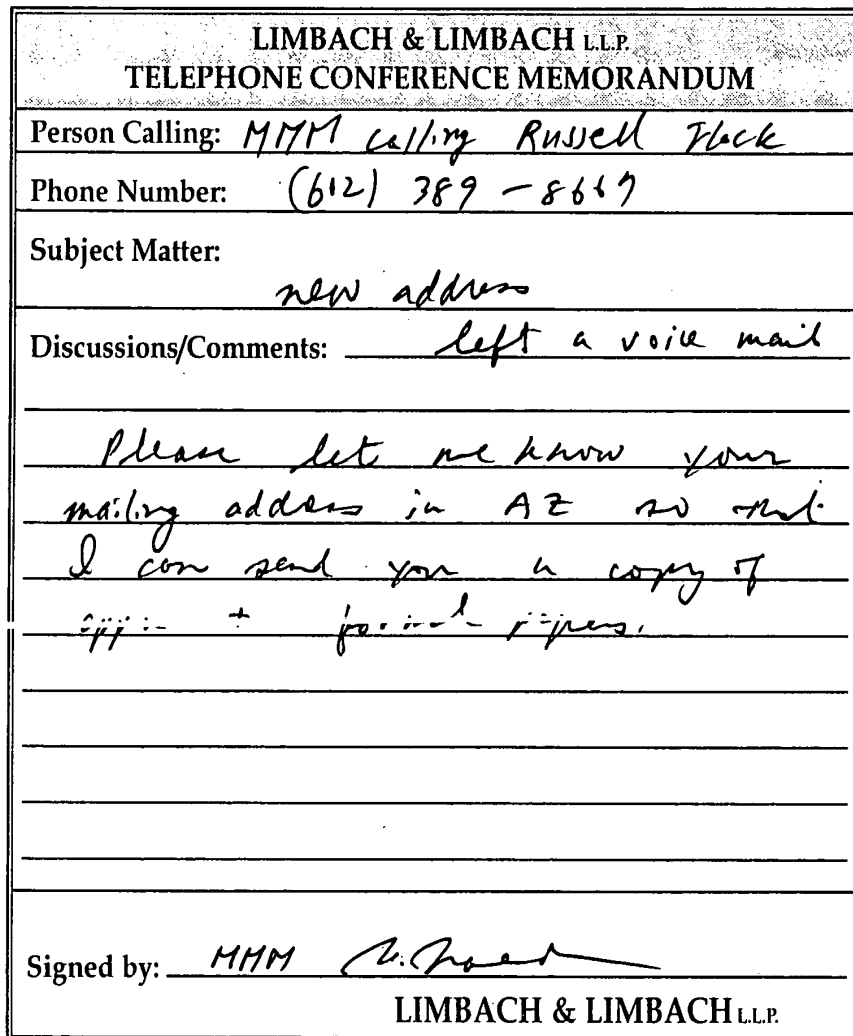 LIMBACH & LIMBACH L.L.P.
TELEPHONE CONFERENCE MEMORANDUM
Person Calling: MMM calling Russell Flack
Phone Number: (612) 389-8669
Subject Matter:
new address
Discussions/Comments: left a voice mail
Please let me know your
mailing address in AZ so that
I can send you a copy of
+ papers.
Signed by: MMM
LIMBACH & LIMBACH L.L.P.